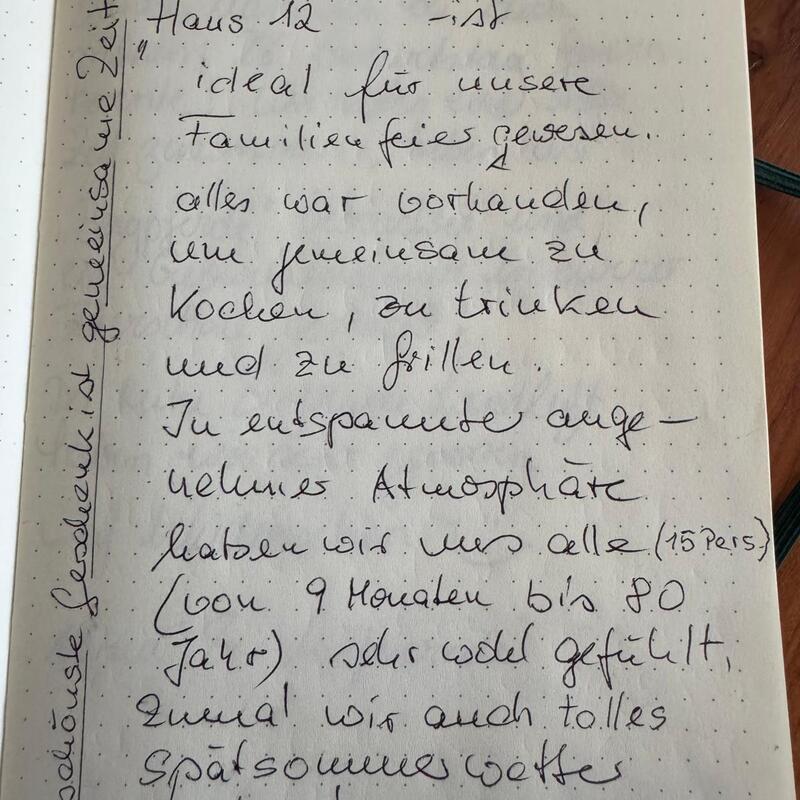 "Haus 12 - ist
ideal für unsere
Familienfeier gewesen.
alles war vorhanden,
um gemeinsam zu
Kochen, zu trinken
und zu Grillen.
In entspannter ange-
nehmer Atmosphäre
haben wir uns alle (15 Pers)
(von 9 Monaten bis 80
Jahr) sehr wohl gefühlt,
zumal wir auch tolles
Spätsommerwetter
schönste Geschenk ist gemeinsame Zeit